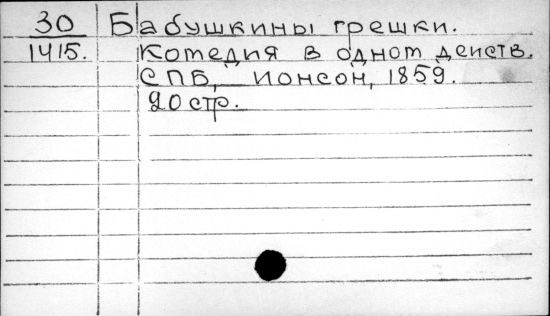 30 Бабушкины грешки.
1415. Комедия в одном действ.
СПБ, Ионсон, 1859.
20 стр.